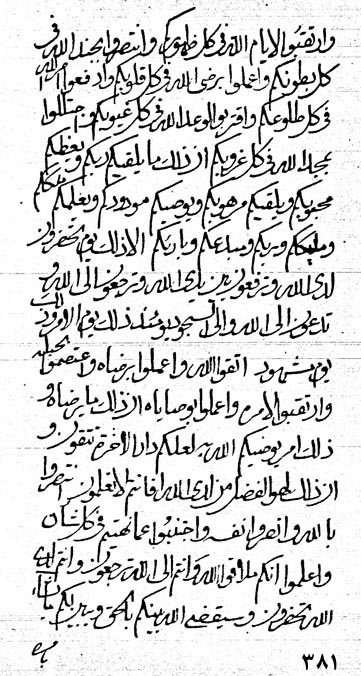 وارتقبوا لايام الله في كل ظهوركم وانتصروا بجند الله في
كل بطونكم واعملوا برضى الله في كل قلوبكم وارفعوا امر الله
في كل طلوعكم واقربوا لوعد الله في كل غيوبكم وجتللوا
بمجد الله في كل غروبكم ان ذلك ما يلقيكم ربكم ويعظكم
محبوبكم ويلقيكم مرهوبكم ويوصيكم مودودكم ويعلمكم وينبئكم
ومليككم وربكم وسلطانكم وبارئكم الا ذلك يوم تحضرون
لدى الله وترفعون بين يدى الله وترجعون الى الله و
تدعون الى الله والى السجود يومئذ ذلك يوم الامر وذلك
يوم مشهود اتقوا الله واعملوا برضاه واعتصموا بحبله
وارتقبوا لامره واعملوا بوصاياه ان ذلك ما يرضاه و
ذلك امر يوصيكم الله به لعلكم دار الاخرة تتقون و
ان ذلك لهو الفضل من لدى الله افانتم لا تعلمون انتصروا
بالله وانصروا الله واجتنبوا عما نهيتم في كل شان
واعلموا انكم ملاقوا الله وانتم الى الله ترجعون وانتم لدى
الله تحضرون وسيقضى الله بينكم بالحق ويريكم
٣٨١